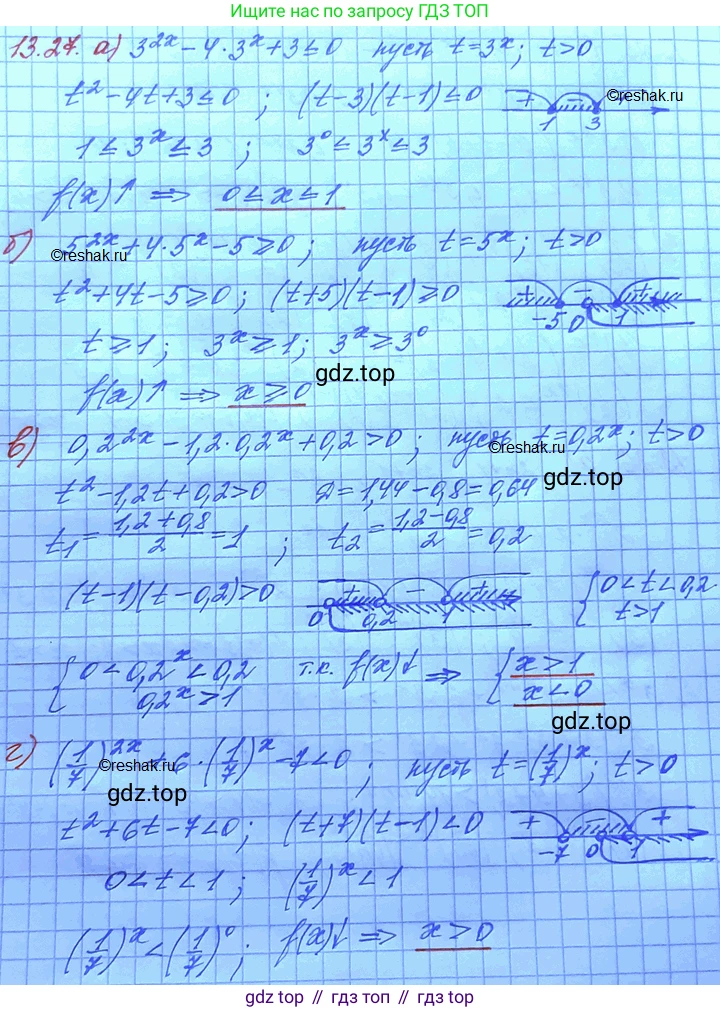 Ищите ответы по запросу ГДЗ ТОП
13.27. а) 3^{2x} - 4·3^x + 3 ≤ 0 пусть t = 3^x; t > 0
t² - 4t + 3 ≤ 0 ; (t-3)(t-1) ≤ 0 + - + 1 3 ©reshak.ru
1 ≤ 3^x ≤ 3 ; 3^0 ≤ 3^x ≤ 3
f(x)↑ ⇒ 0 ≤ x ≤ 1
б) 5^{2x} + 4·5^x - 5 ≥ 0 ; пусть t = 5^x; t > 0
©reshak.ru
t² + 4t - 5 ≥ 0 ; (t+5)(t-1) ≥ 0 + - + -5 0 1
t ≥ 1 ; 3^x ≥ 1 ; 3^x ≥ 3^0
gdz.top
f(x)↑ ⇒ x ≥ 0
в) 0,2^{2x} - 1,2·0,2^x + 0,2 > 0 ; пусть t = 0,2^x; t > 0
©reshak.ru
t² - 1,2t + 0,2 > 0 D = 1,44 - 0,8 = 0,64
gdz.top
t₁ = (1,2 + 0,8)/2 = 1 ; t₂ = (1,2 - 0,8)/2 = 0,2
(t-1)(t-0,2) > 0 + - + 0 0,2 1 { 0 < t < 0,2
t > 1
{ 0 < 0,2^x < 0,2 т.к. f(x)↓ ⇒ { x > 1
0,2^x > 1 x < 0
gdz.top
г) (1/7)^{2x} + 6·(1/7)^x - 7 < 0 ; пусть t = (1/7)^x; t > 0
©reshak.ru
gdz.top
t² + 6t - 7 < 0 ; (t+7)(t-1) < 0 + - + -7 0 1
0 < t < 1 ; (1/7)^x < 1
(1/7)^x < (1/7)^0 ; f(x)↓ ⇒ x > 0
gdz.top // гдз топ // gdz.top